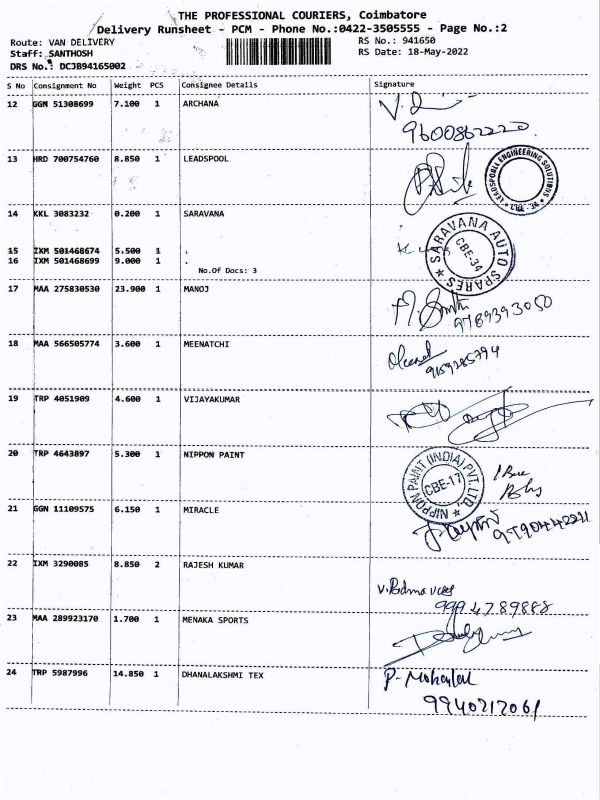 THE PROFESSIONAL COURIERS, Coimbatore
Delivery Runsheet - PCM - Phone No.:0422-3505555 - Page No.:2
Route: VAN DELIVERY RS No.: 941650
Staff: SANTHOSH RS Date: 18-May-2022
DRS No.: DCJB94165002
S No Consignment No Weight PCS Consignee Details Signature
12 GGN 51308699 7.100 1 ARCHANA
9600862220
13 HRD 700754760 8.850 1 LEADSPOOL
LEADSPOOL ENGINEERING SOLUTIONS
14 KKL 3083232 0.200 1 SARAVANA
SARAVANA AUTO SPARES
CBE-34
15 IXM 501468674 5.500 1 .
16 IXM 501468699 9.000 1 .
No.Of Docs: 3
17 MAA 275830530 23.900 1 MANOJ
9789393050
18 MAA 566505774 3.600 1 MEENATCHI
9159285794
19 TRP 4051909 4.600 1 VIJAYAKUMAR
20 TRP 4643897 5.300 1 NIPPON PAINT
NIPPON PAINT (INDIA) PVT. LTD.
CBE-17
21 GGN 11109575 6.150 1 MIRACLE
22 IXM 3290085 8.850 2 RAJESH KUMAR
9994789888
23 MAA 289923170 1.700 1 MENAKA SPORTS
24 TRP 5987996 14.850 1 DHANALAKSHMI TEX
9940217061